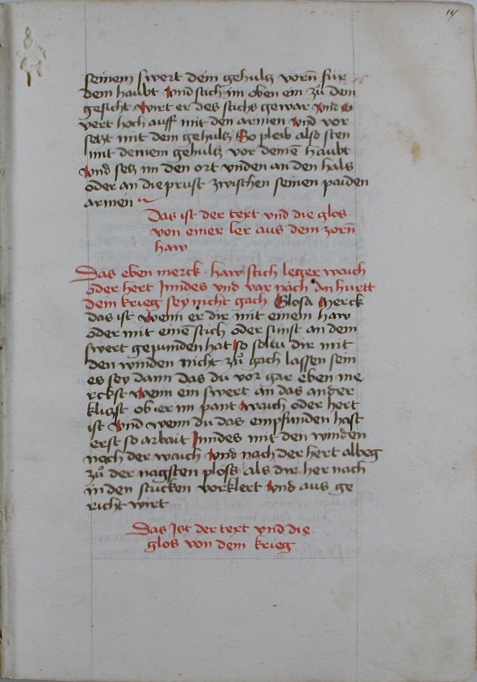 14
seinem swert dein gehultz vorn̄ für
dem haubt Vnd stich im oben ein zu dem
gesicht Wirt er des stichs gewar Vnd
vert hoch auff mit den armen Vnd vor
setzt mit dem gehultz So pleib also sten
mit deinem gehultz vor deinē haubt
Vnd setz im den ort vnden an den hals
oder an die prust zwischen seinen paiden
armen
Das ist der text vnd die glos
von einer ler aus dem zorn̄
haw
Das eben merck haw stich leger waich
oder hert Inndes vnd var nach an hurtt
dem krieg sey nicht gach Glosa Merck
das ist wenn er dir mit einem haw
oder mit einē stich oder sunst an dein
swert gepunden hat so soltu dir mit
den winden nicht zu gach lassen sein
es sey dann das du vor gar eben me
rckst wenn ein swert an das ander
klitzt ob er im pant waich oder hert
ist Vnd wenn du das empfunden hast
erst so arbait Inndes mit den winden
noch der waich Vnd nach der hert albeg
zu der nagsten plöss als dir her nach
in den stucken vorklert Vnd aus ge
richt wirt
Das Ist der text vnd die
glos von dem krieg